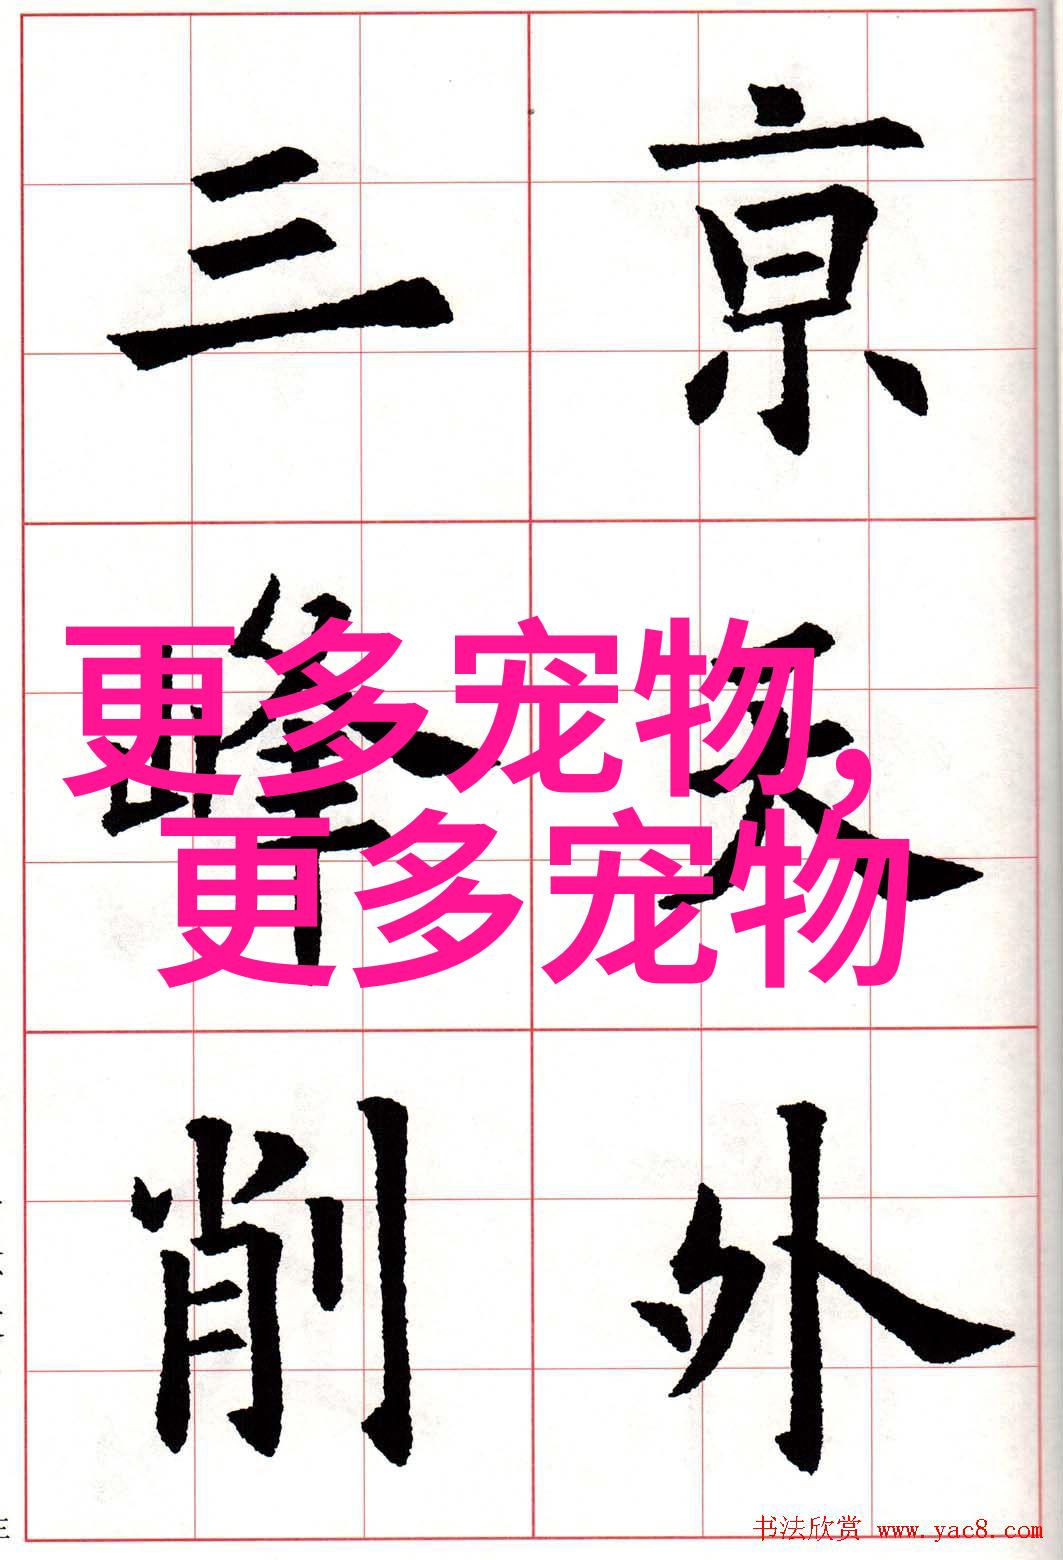 更多宠物,
更多宠物
亰天外
三峰削
书法欣赏 www.yac8.com